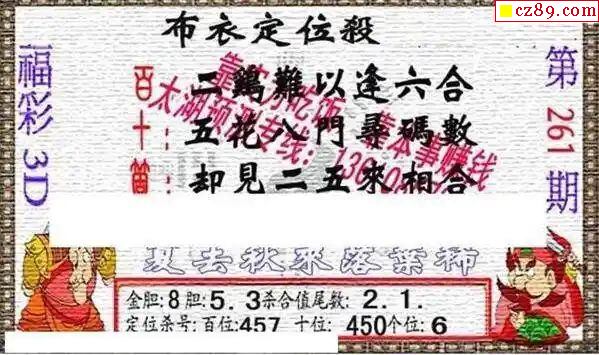 cz89.com
布衣定位殺
福彩3D
第261期
百: 二鷄難以逢六合
十: 五花八門尋碼數
個: 却見二五來相合
夏去秋來落葉稀
金胆:8胆:5.3杀合值尾数:2.1.
定位杀号:百位:457 十位:450个位:6